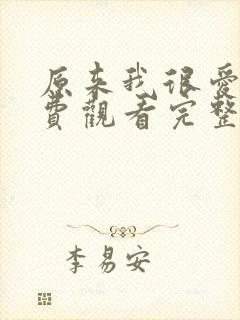 原来我很爱
费觀看完整
李易安